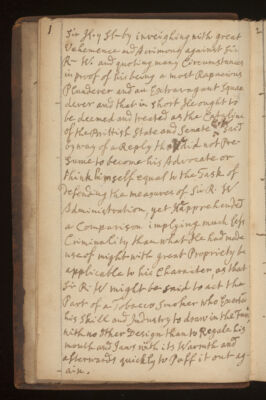 1
Sir H–y Sl–by inveighing with great
Vehemence and Acrimony against Sir
R– W. and quoting many Circumstances
in proof of his being a most Rapacious
Plunderer and an Extravagant Squan
derer and that in short He ought to
be deemed and treated as the Cataline
of the Brittish State and Senate
by way of a Reply tho' did not Pre-
sume to become his Advocate or
think himself equal to the Task of
Defending the measures of Sir R. W
Administration, yet apprehended
a Comparison implying much less
Criminality than what He had made
use of might with great Propriety be
applicable to his Character, as that
Sir R. W might be said to act the
Part of a Tobacco Smoker who Exerts
his Skill and Industry to draw in the Fume
with no other Design than to Regale his
mouth and Jaws with its Warmth and
afterwards quickly to Puff it out ag-
ain.